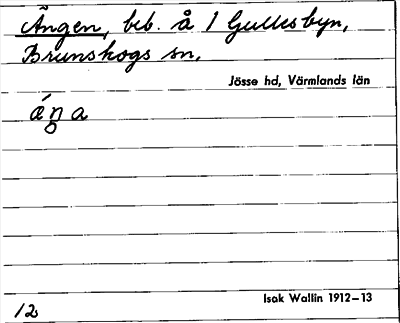 Ängen, beb. å 1 Gullesbyn,
Brunskogs sn.
Jösse hd, Värmlands län
áŋa
Isak Wallin 1912–13
12